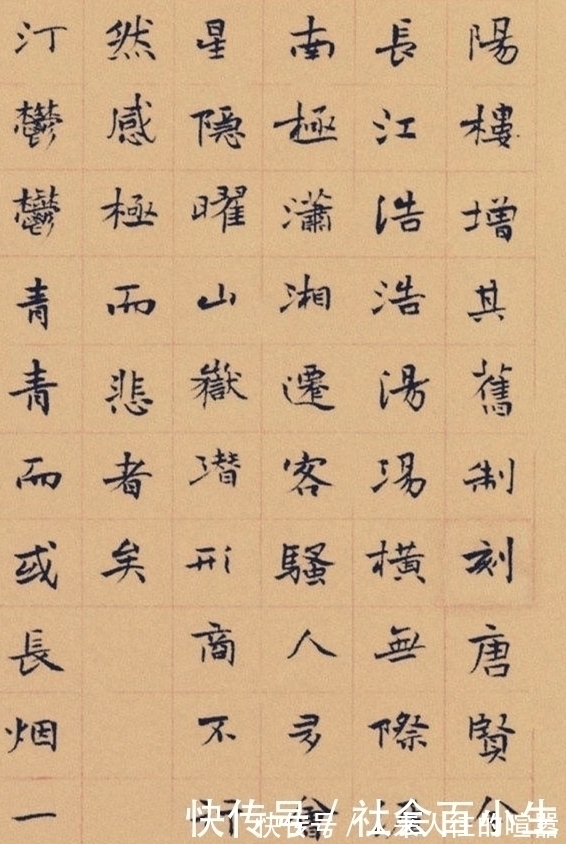 陽樓增其舊制刻唐賢今
長江浩浩湯湯橫無際
南極瀟湘遷客騷人多會
星隱曜山嶽潛形商不
然感極而悲者矣
汀鬱鬱青青而或長烟一
快传号 / 社会小生
快传号 / 人来人往的喧嚣